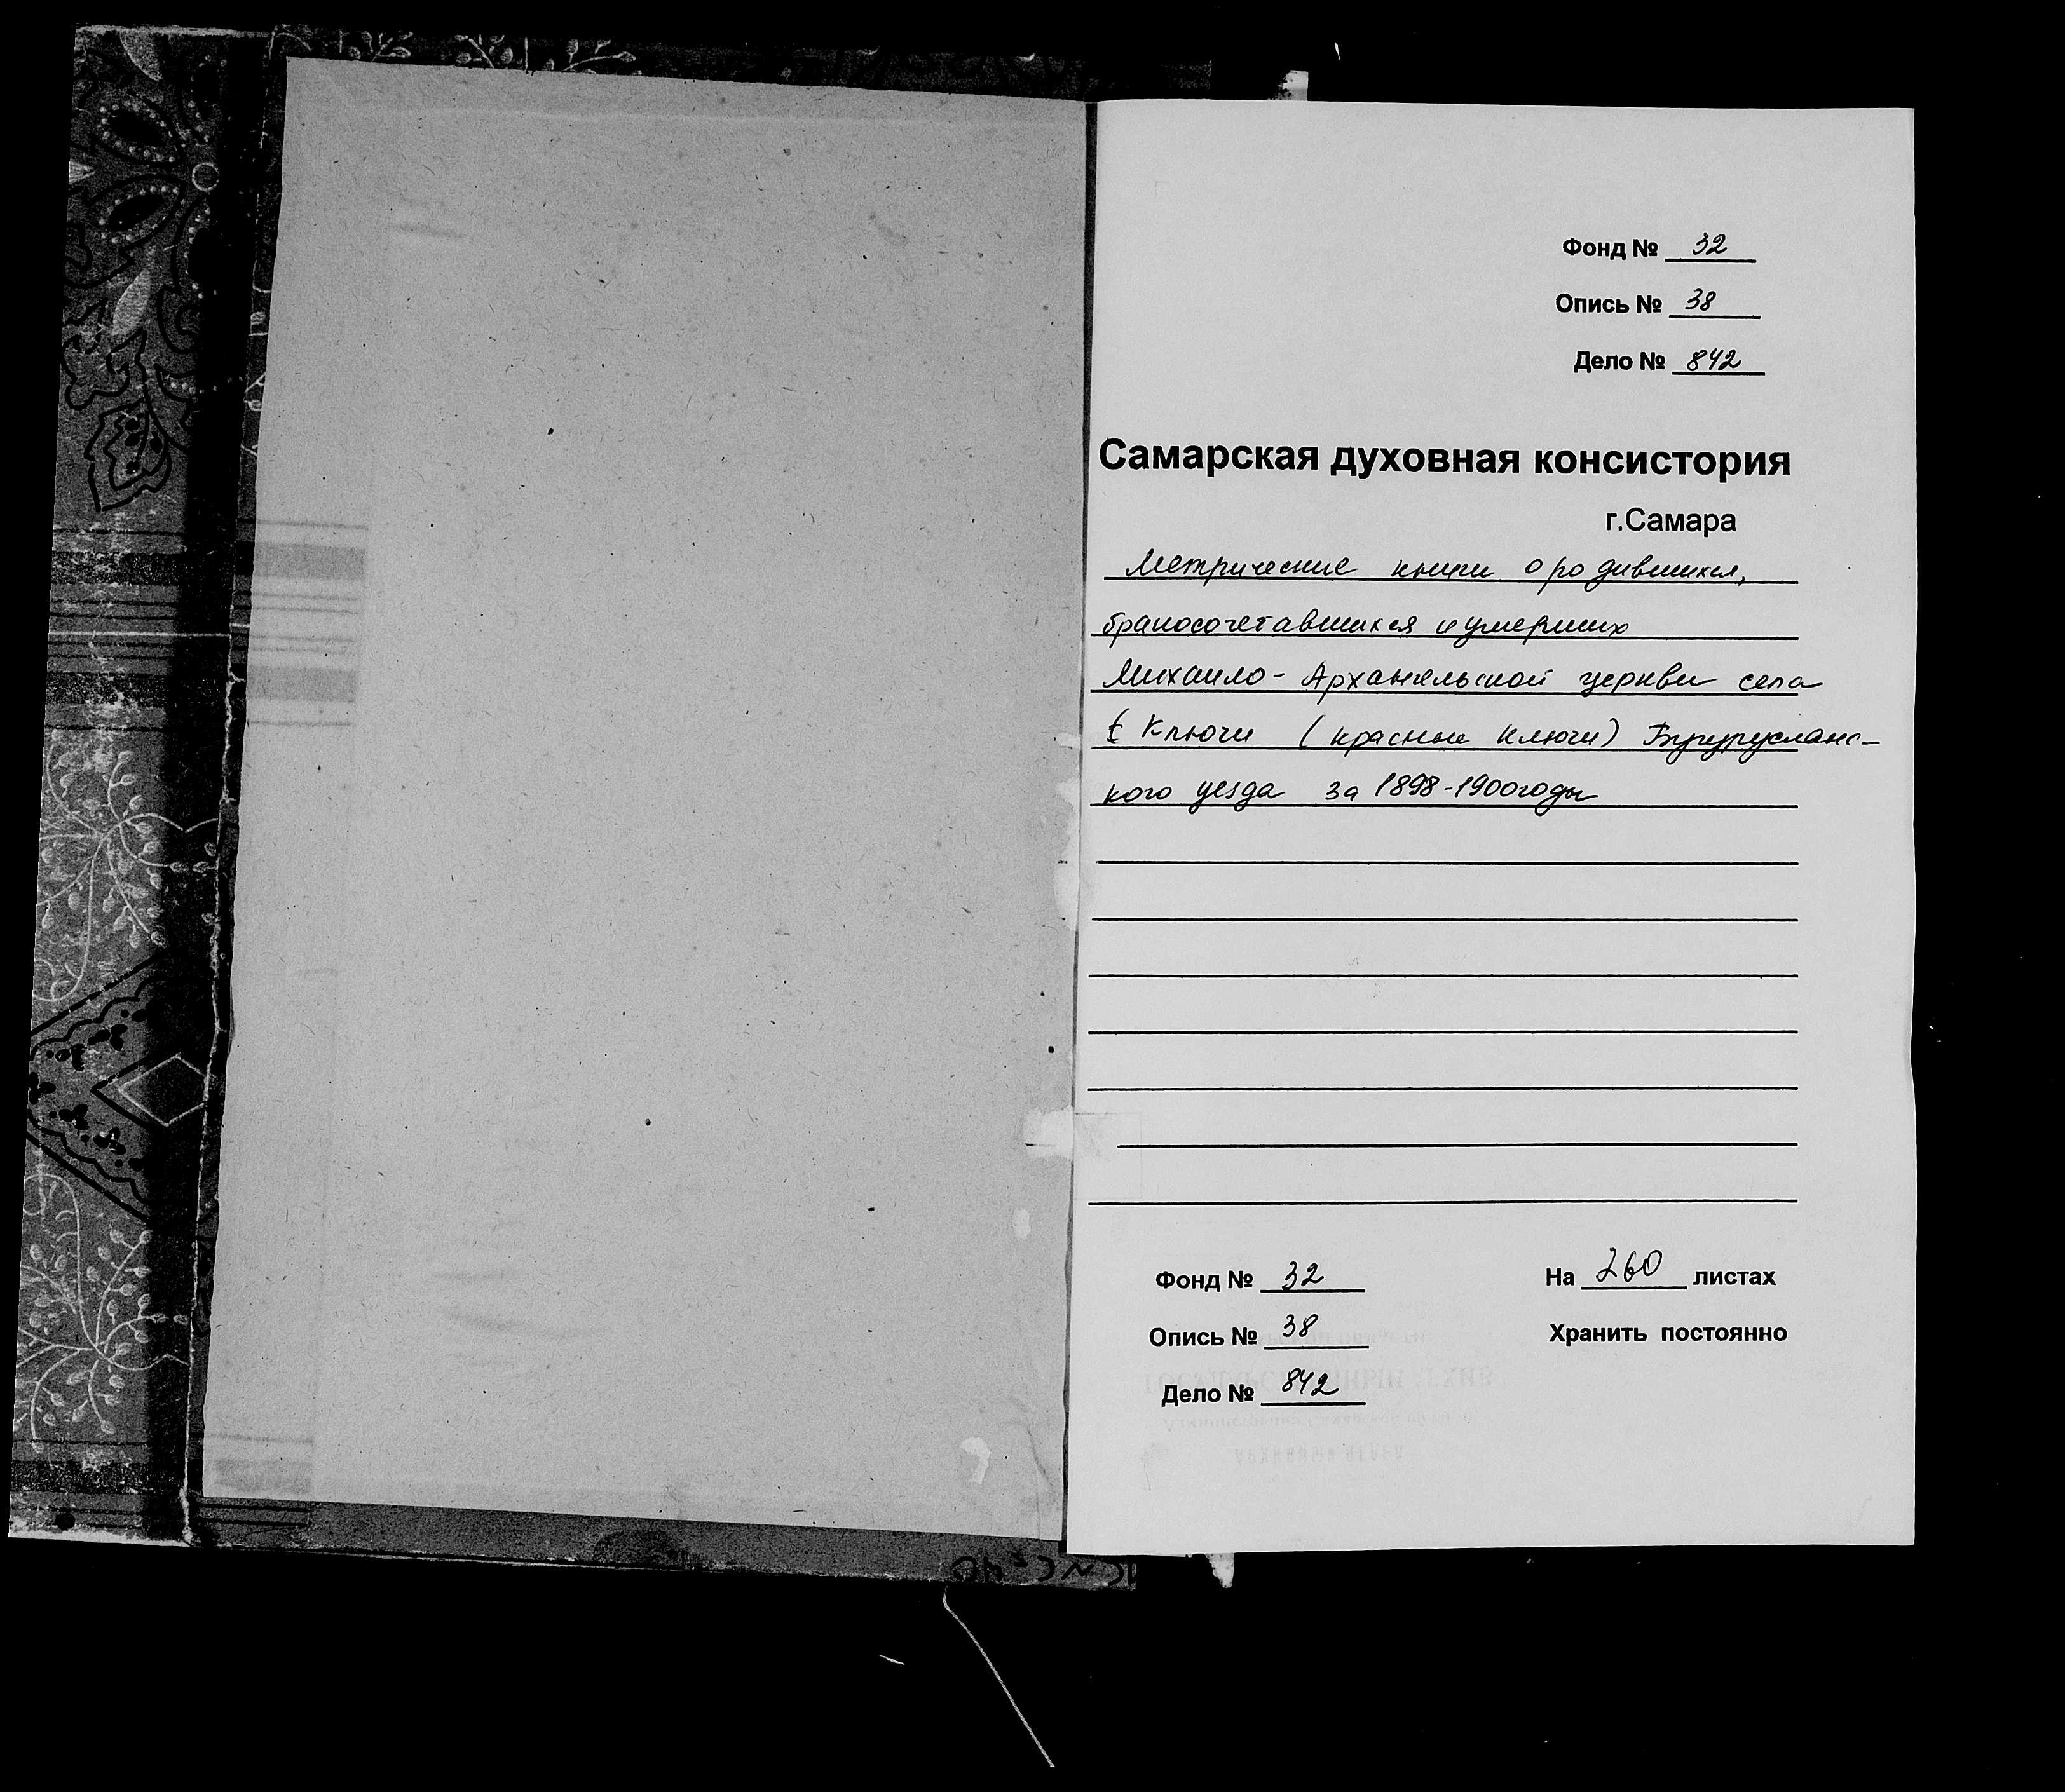 Фонд № 32
Опись № 38
Дело № 842
Самарская духовная консистория
г.Самара
Метрические книги о родившихся,
бракосочетавшихся и умерших
Михаило-Архангельской церкви села
Ключи (Красные Ключи) Бугурусланс-
кого уезда за 1898-1900годы
Фонд № 32
На 260 листах
Опись № 38
Хранить постоянно
Дело № 842